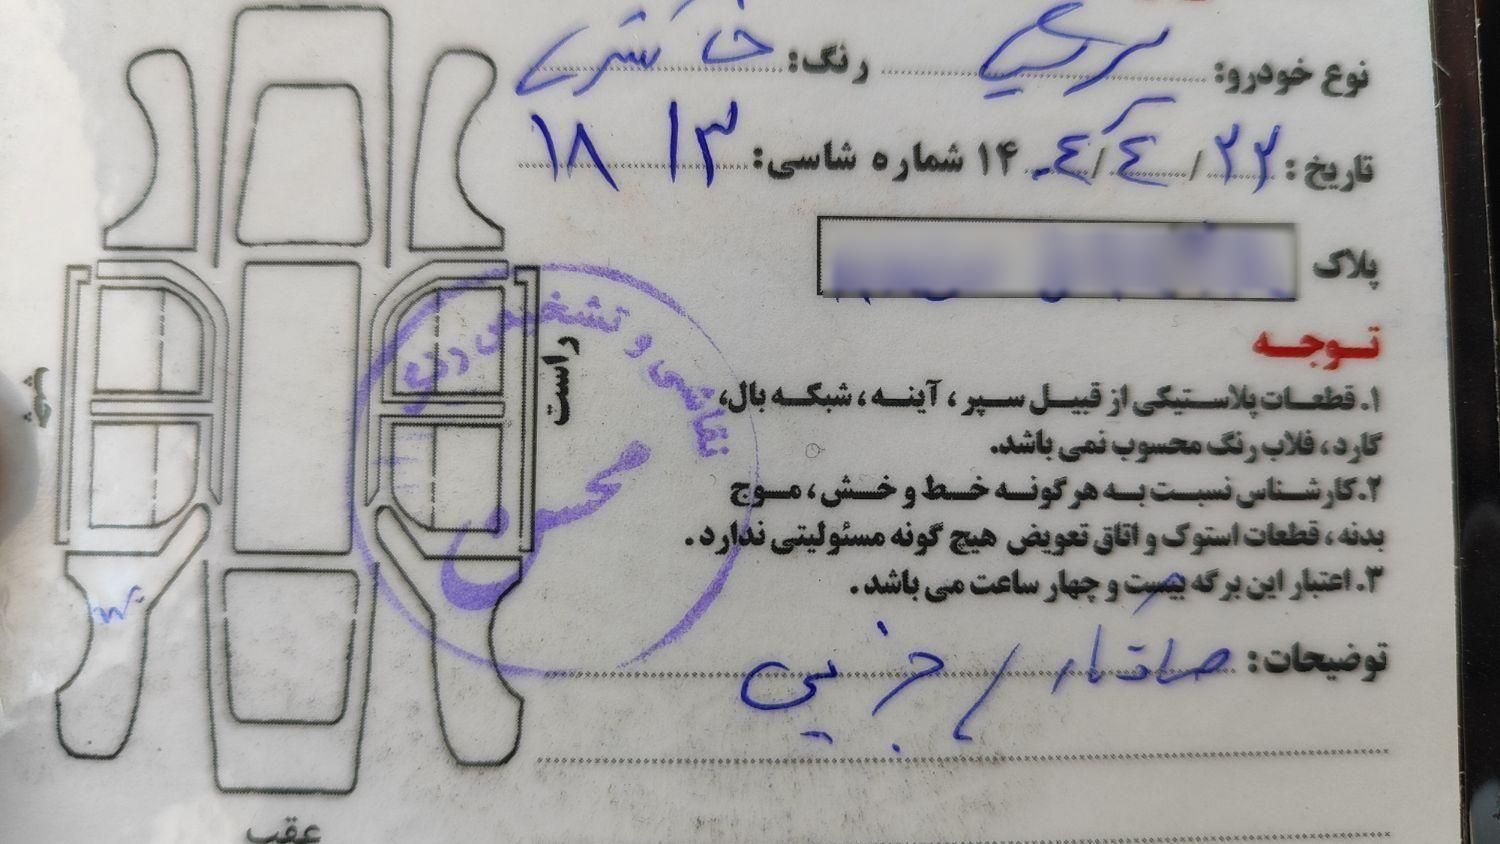 نوع خودرو: رنگ: خاکستری
تاریخ: ۲۲/۴/۱۴۰۴ شماره شاسی: ۱۸ ۱۳
پلاک
توجه
۱. قطعات پلاستیکی از قبیل سپر، آینه، شبکه بال،
گارد، قلاب رنگ محسوب نمی باشد.
۲. کارشناس نسبت به هر گونه خط و خش، موج
بدنه، قطعات استوک و اتاق تعویض هیچ گونه مسئولیتی ندارد.
۳. اعتبار این برگه بیست و چهار ساعت می باشد.
توضیحات:
راست
عقب
نقاشی و تشخیص رنگ
محسن